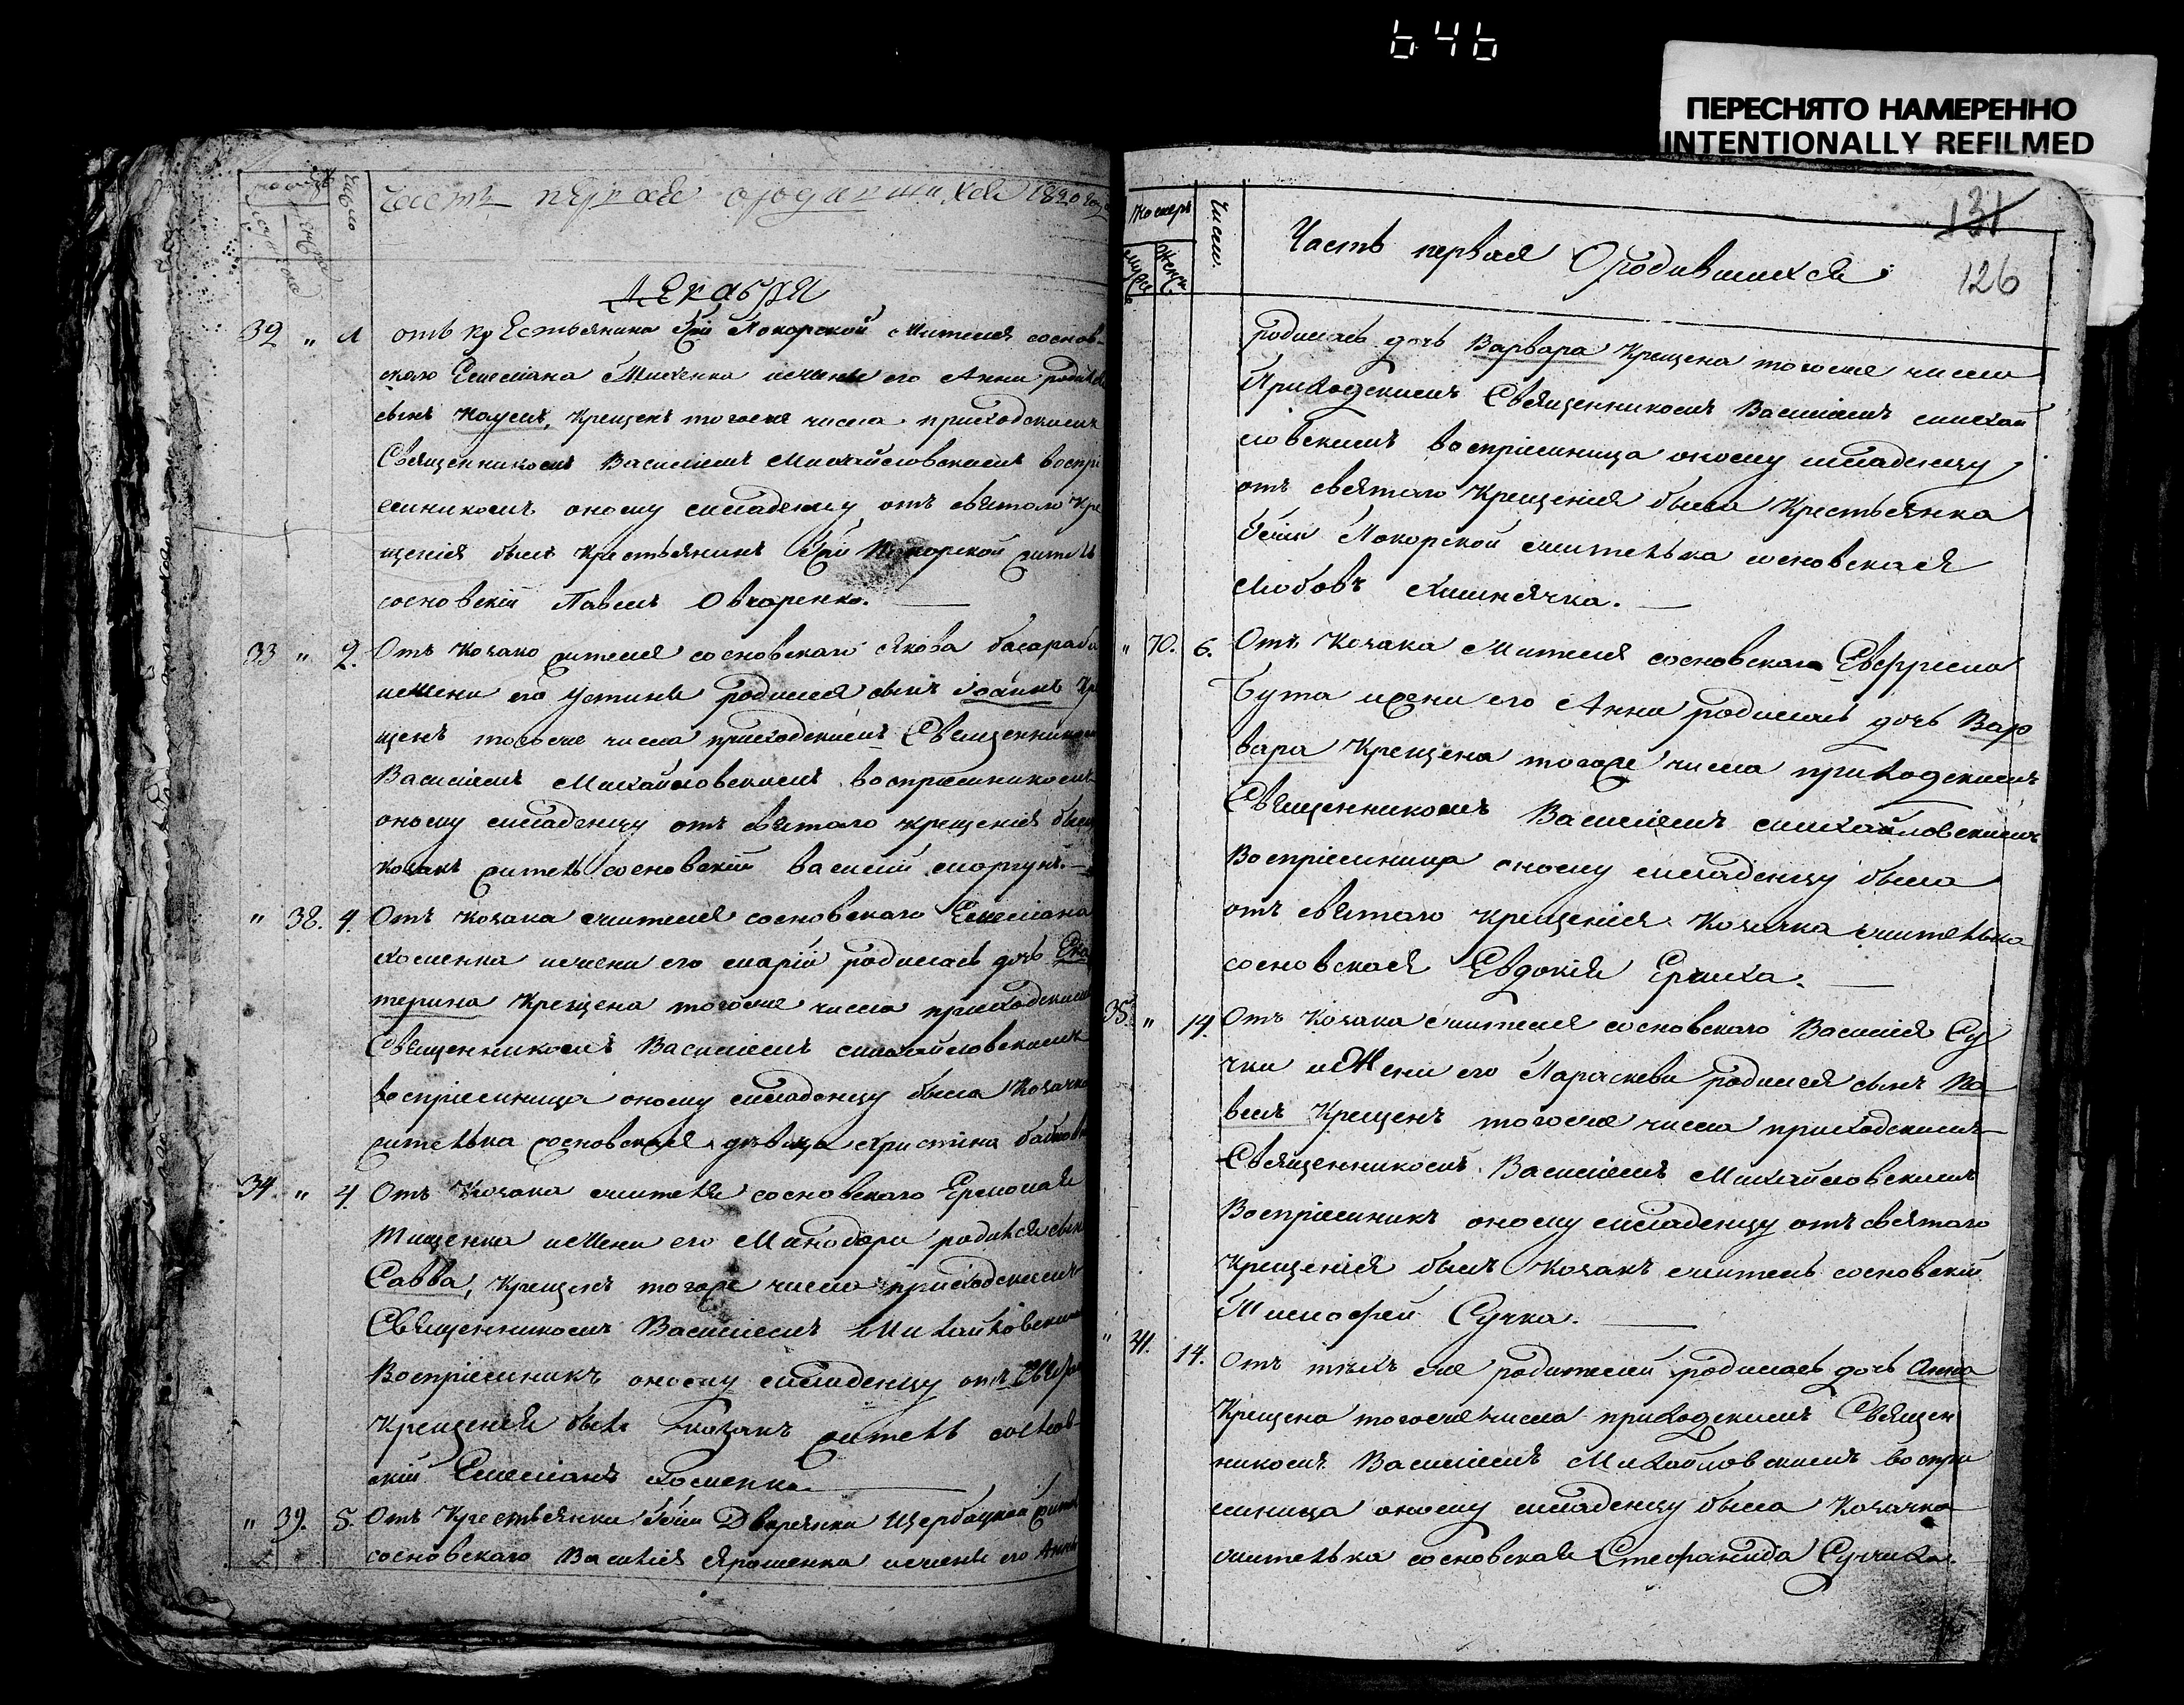 646
ПЕРЕСНЯТО НАМЕРЕННО
INTENTIONALLY REFILMED
число
Часть первая о родившихся 1820 года
Декабря
32 " 1 отъ крестьянина Гжи Покорской жителя соснов-
ского Емелиана Мисченка ижены его Анны родился
сынъ Наумъ, крещенъ тогоже числа приходскимъ
Священникомъ Василиемъ Михайловскимъ воспрі
емникомъ оному младенцу отъ святого кре
щенія былъ крестьянинъ Гжи Покорской житель
сосновскій Павелъ Овчаренко.
33 " 2. Отъ козака жителя сосновскаго Якова басараба
ижени его Устины родился сынъ Іоаннъ Кре
щенъ тогоже числа приходскимъ Священникомъ
Василиемъ Михайловскимъ воспріемникомъ
оному младенцу отъ святаго крещенія былъ
козакъ житель сосновскій василій моргунъ.
" 38. 4. Отъ козака жителя сосновскаго Емелиана
хоменка ижени его маріи родилась дочь Ека
терина Крещена тогоже числа приходскимъ
Священникомъ Василиемъ михайловскимъ
воспріемница оному младенцу была Козачка
жителька сосновская дѣвица Христина
34. " 4. Отъ Козака жителя сосновскаго Ермолая
Тищенка ижени его Минодори родился сынъ
Савва, крещенъ тогоже числа приходскимъ
Священникомъ Василиемъ Михайловскимъ
Воспріемникъ оному младенцу отъ
Крещенія былъ козакъ житель соснов-
скій Емелианъ хоменко
" 39. 5. Отъ Крестьянина Гжи Дворянки Щербацкой жителя
сосновскаго Василія Ярошенка ижены его Анны
131
126
Номеръ
мужес
женск
Число.
Часть первая О родившихся
родилась дочь Варвара Крещена тогоже числа
Приходскимъ Священникомъ Василиемъ михай
ловскимъ воспріемница оному младенцу
отъ святаго Крещенія была Крестьянка
Гжи Покорской жителька сосновская
Любовъ Химнячка.
" 40. 6. Отъ Козака Жителя сосновскаго Евфрема
Бута ижени его Анни родилась дочь Вар
вара Крещена тогоже числа приходскимъ
Священникомъ Василиемъ михайловскимъ
Воспріемница оному младенцу была
отъ святаго крещенія Козачка жителька
сосновская Евдокія Ермиха.
35. " 14. Отъ Козака жителя сосновскаго Василія Су
чки иЖени его Параскеви родился сынъ Па
велъ Крещенъ тогоже числа приходскимъ
Священникомъ Василиемъ Михайловскимъ
Воспріемникъ оному младенцу отъ святаго
Крещенія былъ Козакъ житель сосновскій
Тимофей Сучка.
" 41. 14. Отъ тѣхъ же родителей родилась дочь Анна
Крещена тогоже числа приходскимъ Священ
никомъ Василиемъ Михайловскимъ воспри
емница оному младенцу была Козачка
жителька сосновская Стефанида Сучиха.